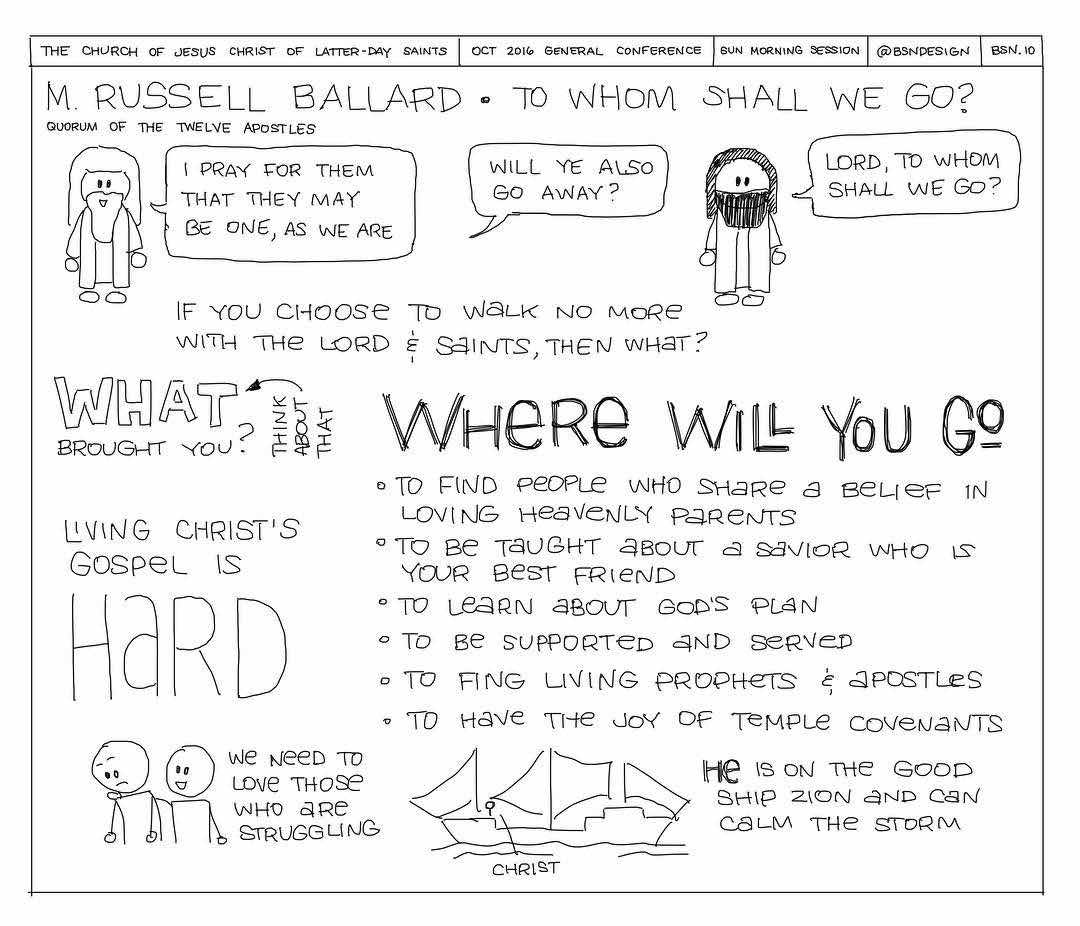 THE CHURCH OF JESUS CHRIST OF LATTER-DAY SAINTS
OCT 2016 GENERAL CONFERENCE
SUN MORNING SESSION
@BSNDESIGN
BSN.10
M. RUSSELL BALLARD • TO WHOM SHALL WE GO?
QUORUM OF THE TWELVE APOSTLES
I PRAY FOR THEM
THAT THEY MAY
BE ONE, AS WE ARE
WILL YE ALSO
GO AWAY?
LORD, TO WHOM
SHALL WE GO?
IF YOU CHOOSE TO WALK NO MORE
WITH THE LORD & SAINTS, THEN WHAT?
WHAT
BROUGHT YOU?
THINK
ABOUT
THAT
WHERE WILL YOU GO
• TO FIND PEOPLE WHO SHARE A BELIEF IN
LOVING HEAVENLY PARENTS
• TO BE TAUGHT ABOUT A SAVIOR WHO IS
YOUR BEST FRIEND
• TO LEARN ABOUT GOD'S PLAN
• TO BE SUPPORTED AND SERVED
• TO FING LIVING PROPHETS & APOSTLES
• TO HAVE THE JOY OF TEMPLE COVENANTS
LIVING CHRIST'S
GOSPEL IS
HARD
WE NEED TO
LOVE THOSE
WHO ARE
STRUGGLING
CHRIST
HE IS ON THE GOOD
SHIP ZION AND CAN
CALM THE STORM